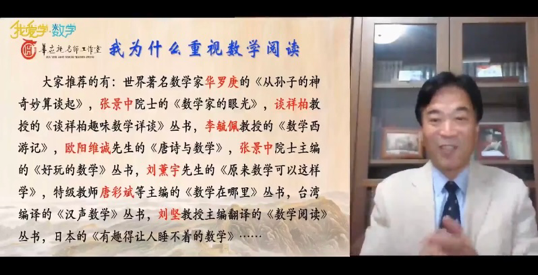 我爱学·数学
我为什么重视数学阅读
大家推荐的有：世界著名数学家华罗庚的《从孙子的神
奇妙算谈起》，张景中院士的《数学家的眼光》，谈祥柏教
授的《谈祥柏趣味数学详谈》丛书，李毓佩教授的《数学西
游记》，欧阳维诚先生的《唐诗与数学》，张景中院士主编
的《好玩的数学》丛书，刘薰宇先生的《原来数学可以这样
学》，特级教师唐彩斌等主编的《数学在哪里》丛书，台湾
编译的《汉声数学》丛书，刘坚教授主编翻译的《数学阅读》
丛书，日本的《有趣得让人睡不着的数学》……